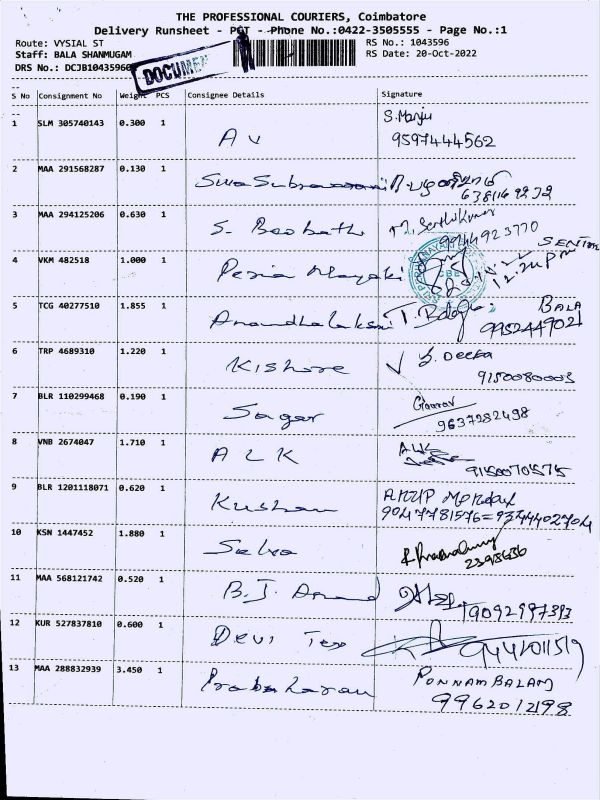 THE PROFESSIONAL COURIERS, Coimbatore
Delivery Runsheet - PCT - Phone No.:0422-3505555 - Page No.:1
Route: VYSIAL ST RS No.: 1043596
Staff: BALA SHANMUGAM RS Date: 20-Oct-2022
DRS No.: DCJB1043596
DOCUMEN
S No Consignment No Weight PCS Consignee Details Signature
1 SLM 305740143 0.300 1 A V S. Manju
9597444562
2 MAA 291568287 0.130 1
3 MAA 294125206 0.630 1 S. M. Senthilkumar
9944923770
4 VKM 482518 1.000 1 Peria Nayaki SENTHIL
12.24 pm
5 TCG 40277510 1.855 1 T. Balaji BALA
9952449021
6 TRP 4689310 1.220 1 Kishore S. Deepa
9150080003
7 BLR 110299468 0.190 1 Sagar Gaurav
9637282498
8 VNB 2674047 1.710 1 A L K ALK
9150070575
9 BLR 1201118071 0.620 1 Kushan ANUP Mondal
9047781576=9344402704
10 KSN 1447452 1.880 1 Selva
2398686
11 MAA 568121742 0.520 1 B. J. Anand 9092997393
12 KUR 527837810 0.600 1 Devi Tex 9442011519
13 MAA 288832939 3.450 1 Prabakaran PONNAMBALAM
9962012198